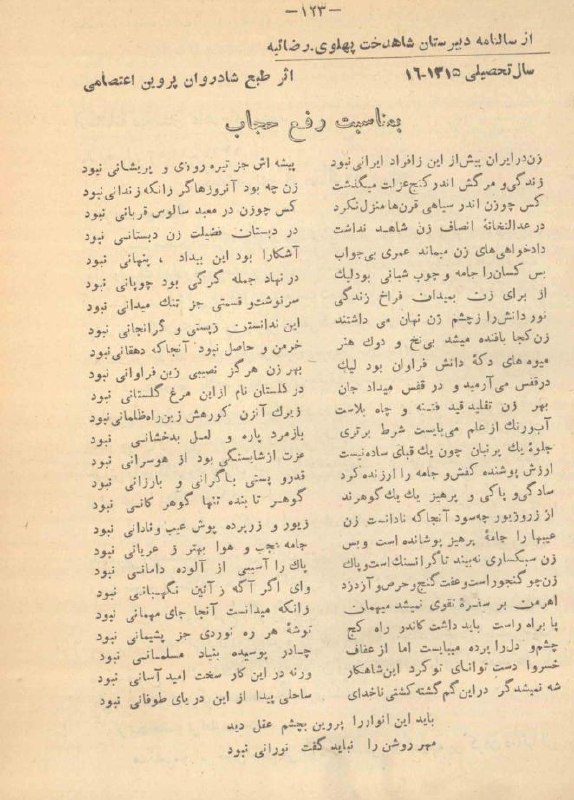 -۱۲۳-
از سالنامه دبیرستان شاهدخت پهلوی-رضائیه
سال تحصیلی ۱۳۱۵-۱۶ اثر طبع شادروان پروین اعتصامی
بمناسبت رفع حجاب
زن در ایران پیش از این ز افراد ایرانی نبود پیشه اش جز تیره روزی و پریشانی نبود
زندگی و مرگش اندر کنج عزلت میگذشت زن چه بود آنروزها گر زانکه زندانی نبود
کس چو زن اندر سیاهی قرن ها منزل نکرد کس چو زن در معبد سالوس قربانی نبود
در عدالتخانهٔ انصاف زن شاهد نداشت در دبستان فضیلت زن دبستانی نبود
دادخواهی های زن میماند عمری بی جواب آشکارا بود این بیداد ، پنهانی نبود
بس کسان را جامه و چوب شبانی بود لیک در نهاد جمله گرگی بود چوپانی نبود
از برای زن بمیدان فراخ زندگی سرنوشت و قسمتی جز تنگ میدانی نبود
نور دانش را ز چشم زن نهان می داشتند این ندانستن ز پستی و گرانجانی نبود
زن کجا بافنده میشد بی نخ و دوک هنر خرمن و حاصل نبود آنجا که دهقانی نبود
میوه های دکهٔ دانش فراوان بود لیک بهر زن هرگز نصیبی زین فراوانی نبود
در قفس می آرمید و در قفس میداد جان در گلستان نام از این مرغ گلستانی نبود
بهر زن تقلید قید فتنه و چاه بلاست زیرک آنزن کورهش زین راه ظلمانی نبود
آب ورنگ از علم می بایست شرط برتری بازمرد پاره و لعل بدخشانی نبود
جلوهٔ یک پرنیان چون یک قبای ساده نیست عزت از شایستگی بود از هوسرانی نبود
ارزش پوشنده کفش و جامه را ارزنده کرد قدر و پستی با گرانی و بارزانی نبود
سادگی و پاکی و پرهیز یک یک گوهرند گوهر تابنده تنها گوهر کانی نبود
از زر و زیور چه سود آنجا که نادانست زن زیور و زر پرده پوش عیب و نادانی نبود
عیبها را جامهٔ پرهیز پوشانده است و بس جامه عجب و هوا بهتر ز عریانی نبود
زن سبکساری نه بیند تا گرانسنک است و پاک پاک را آسیبی از آلوده دامانی نبود
زن چو گنجور است و عفت گنج و حرص و آز دزد وای اگر آگه ز آئین نگهبانی نبود
اهرمن بر سفرهٔ تقوی نمیشد میهمان زانکه میدانست آنجا جای مهمانی نبود
پا براه راست باید داشت کاندر راه کج توشهٔ هر ره نوردی جز پشیمانی نبود
چشم و دل را پرده میبایست اما از عفاف چادر پوسیده بنیاد مسلمانی نبود
خسروا دست توانای تو کرد این شاهکار ورنه در این کار سخت امید آسانی نبود
شه نمیشد گر در این گم گشته کشتی ناخدای ساحلی پیدا از این دریای طوفانی نبود
باید این انوار را پروین بچشم عقل دید
مهر روشن را نباید گفت نورانی نبود